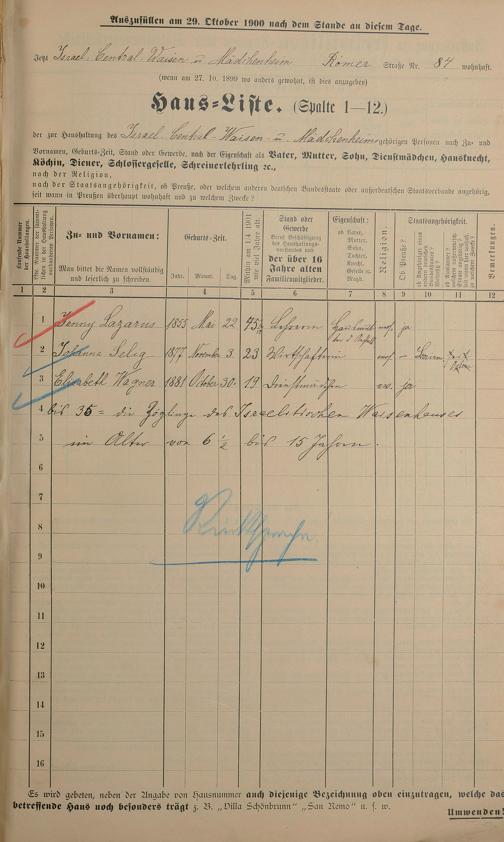 Auszufüllen am 29. Oktober 1900 nach dem Stande an diesem Tage.
Jetzt Israel. Central-Waisen u. Mädchenheim Römer Straße Nr. 84 wohnhaft.
(wenn am 27. 10. 1899 wo anders gewohnt, ist dies anzugeben)
Haus-Liste. (Spalte 1—12.)
der zur Haushaltung des Israel. Central Waisen- u. Mädchenheims gehörigen Personen nach Zu- und
Vornamen, Geburts-Zeit, Stand oder Gewerbe, nach der Eigenschaft als Vater, Mutter, Sohn, Dienstmädchen, Hausknecht,
Köchin, Diener, Schlossergeselle, Schreinerlehrling ꝛc.,
nach der Religion,
nach der Staatsangehörigkeit, ob Preuße, oder welchem anderen deutschen Bundesstaate oder außerdeutschen Staatsverbande angehörig,
seit wann in Preußen überhaupt wohnhaft und zu welchem Zwecke?
Laufende Nummer der Haushaltungen
Zu- und Vornamen:
Man bittet die Namen vollständig und leserlich zu schreiben.
Geburts-Zeit.
Jahr. Monat. Tag.
Mithin am 1/4 1901 wie viel Jahre alt.
Stand oder Gewerbe
Beruf Beschäftigung des Haushaltungsvorstandes und
der über 16 Jahre alten Familienmitglieder.
Eigenschaft:
ob Vater, Mutter, Sohn, Tochter, Knecht, Geselle o. Magd.
Religion.
Staatsangehörigkeit.
Ob Preuße?
Bemerkungen.
1 2 3 4 5 6 7 8 9 10 11 12
1 Jenny Lazarus 1855 Mai 22 45 Lehrerin Hausmutter mos. ja
2 Johanna Selig 1877 November 3. 23 Wirtschafterin mos. –
3 Elisabeth Wagner 1881 October 30. 19 Dienstmädchen ev. ja
4 bis 35 = die Zöglinge des Israelitischen Waisenhauses
5 im Alter von 6 ½ bis 15 Jahren.
6
7
8
9
10
11
12
13
14
15
16
Es wird gebeten, neben der Angabe von Hausnummer auch diejenige Bezeichnung oben einzutragen, welche das
betreffende Haus noch besonders trägt z. B. „Villa Schönbrunn" „San Remo" u. s. w.
Umwenden!